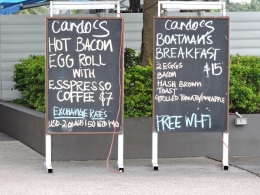 Cardo's
HOT BACON
EGG ROLL
WITH
ESSPRESSO
COFFEE $7
EXCHANGE RATES
Cardo's
BOATMAN'S
BREAKFAST
2 EGGS $15
BACON
HASH BROWN
TOAST
GRILLED TOMATO/PINEAPPLE
FREE WI-FI